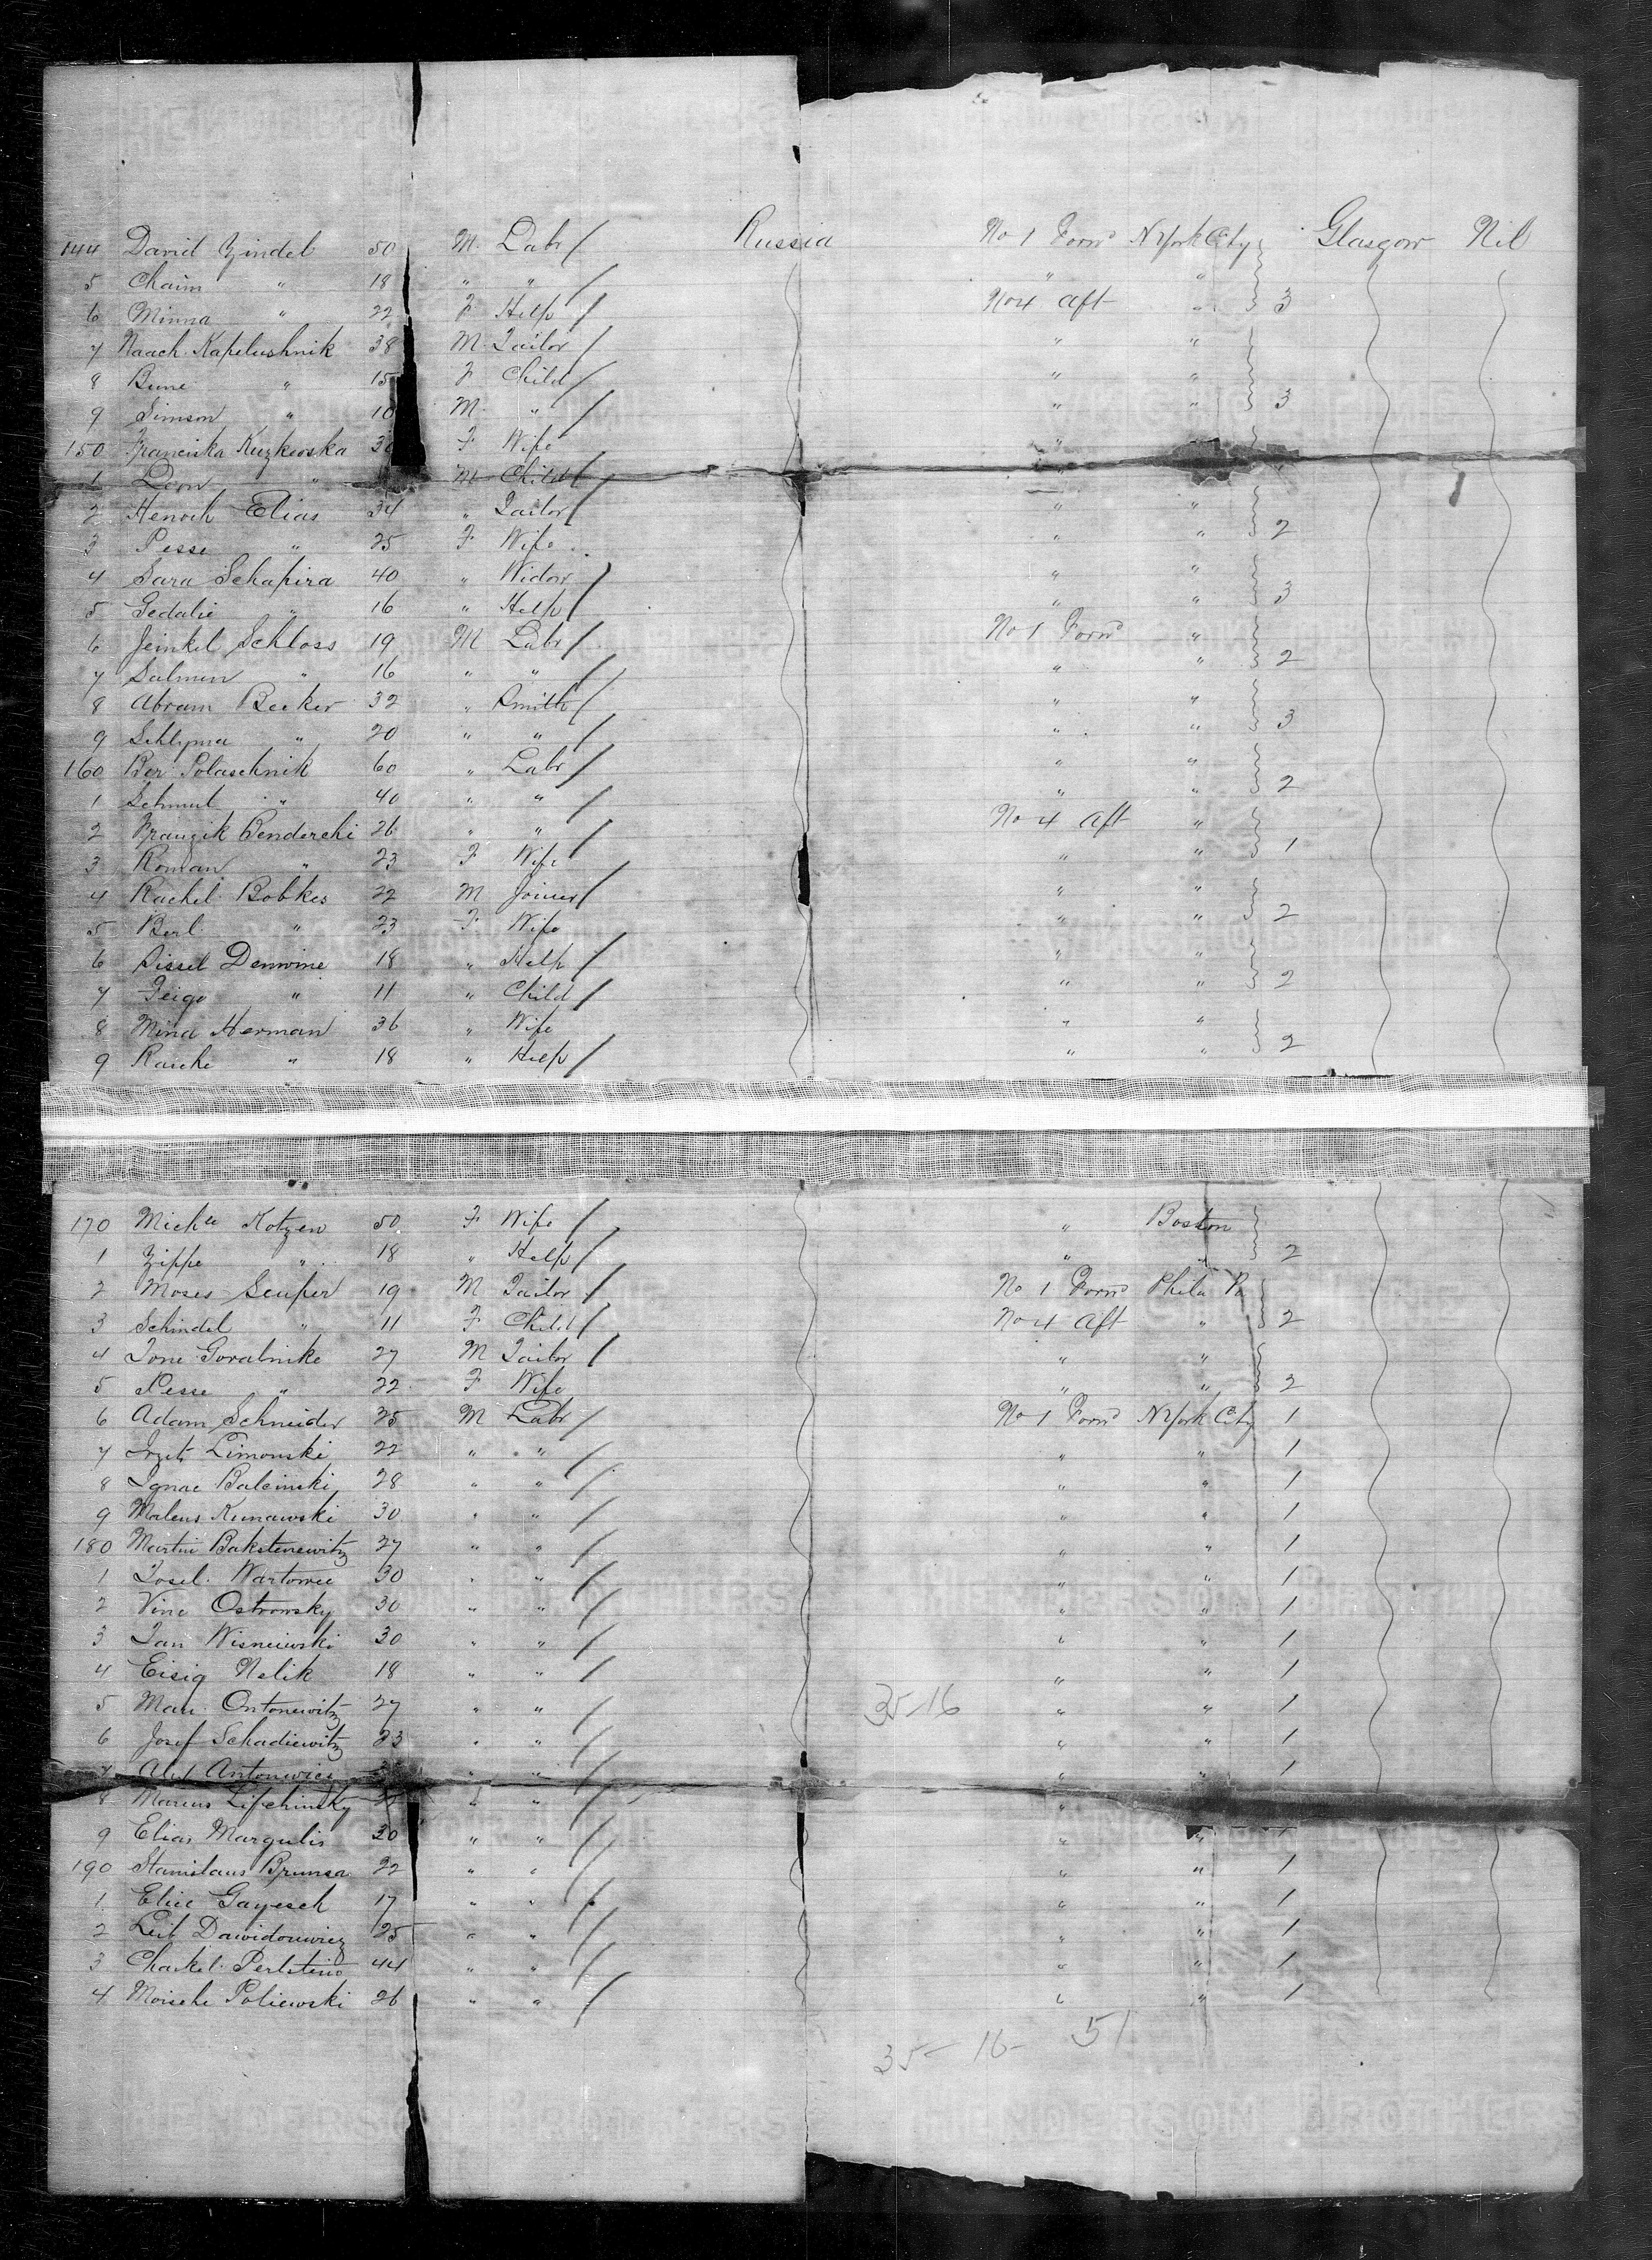 144 David Zindel 50 M. Labr / Russia No 1 Forwd N York City Glasgow Nil
5 Chaim " 18 " " / " "
6 Minna " 22 F Help / No 4 Aft " 3
7 Naach. Kapelushnik 38 M. Tailor / " "
8 Bune " 15 F Child / " "
9 Simson " 10 M. " / " " 3
150 Franciska Kuzkowska 30 F Wife "
1 Leon " M Child / "
2 Henoch Elias 34 " Tailor / " "
3 Pesse " 25 F Wife " " 2
4 Sara Schapira 40 " Widow / " "
5 Gedalie " 16 " Help / " " 3
6 Jeinkel Schloss 19 M Labr / No 1 Forwd "
7 Salmen " 16 " " / " " 2
8 Abram Becker 32 " Smith / " "
9 Schlyma " 20 " " / " " 3
160 Ber Polaschnik 60 " Labr / " "
1 Schmul " 40 " " / " " 2
2 Franzik Benderchi 26 " " / No 4 Aft "
3 Roman " 23 F Wife " " 1
4 Rachel Bobkes 22 M Joiner / " "
5 Berl " 23 F Wife " " 2
6 Sissel Denwine 18 " Help / " "
7 Feige " 11 " Child / " " 2
8 Mina Herman 36 " Wife " "
9 Rasche " 18 " Help / " " 2
170 Michle Kotzen 50 F Wife / " Boston
1 Zippe " 18 " Help / " " 2
2 Moses Seuper 19 M Tailor / No 1 Forwd Phila Pa
3 Schindel " 11 F Child / No 4 Aft " 2
4 Tone Goralnike 27 M Tailor / " "
5 Pesse " 22 F Wife " " 2
6 Adam Schneider 35 M Labr / No 1 Forwd N York City 1
7 Limonski 22 " " / " " 1
8 Ignac Balcinski 28 " " / " " 1
9 Mateus Kunawski 30 " " / " " 1
180 Martin Bakstenewitz 27 " " / " " 1
1 Josel. Wartowee 30 " " / " " 1
2 Vinc Ostrowsky 30 " " / " " 1
3 Jan Wisneiwski 30 " " / " " 1
4 Eisig Nelik 18 " " / " " 1
5 Mari Ontonewitz 27 " " / 35-16 " " 1
6 Josef Schadiewitz 23 " " / " " 1
7 Alex Antonwicz " " / " " 1
8 Marcus Lifchinsky " " / "
9 Elias Margulis 30 " " / " " 1
190 Stanislaus Brunsa 22 " " / " " 1
1 Elie Gayesch 17 " " / " " 1
2 Leib Dawidouwiez 25 " " / " " 1
3 Chaikel Perlstein 44 " " / " " 1
4 Moische Poliewski 26 " " / " " 1
35 - 16 - 51
HENDERSON BROTHERS HENDERSON BROTHERS